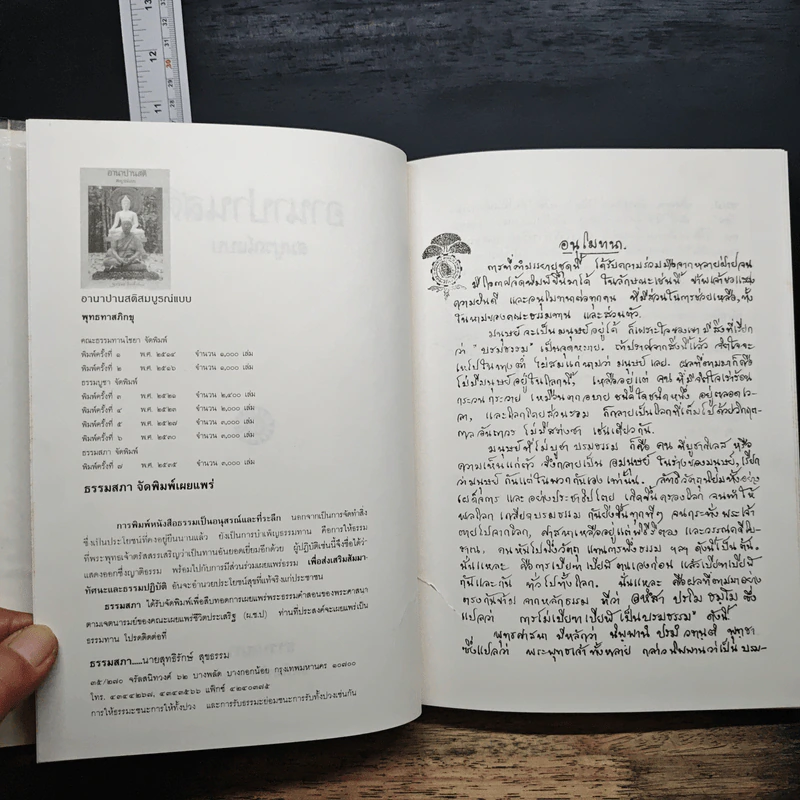 13
12
11
30
29
28
อานาปานสติ
อานาปานสติสมบูรณ์แบบ
พุทธทาสภิกขุ
คณะธรรมทานไชยา จัดพิมพ์
พิมพ์ครั้งที่ ๑ พ.ศ. ๒๕๑๔ จำนวน ๑,๐๐๐ เล่ม
พิมพ์ครั้งที่ ๒ พ.ศ. ๒๕๑๖ จำนวน ๑,๐๐๐ เล่ม
ธรรมบูชา จัดพิมพ์
พิมพ์ครั้งที่ ๓ พ.ศ. ๒๕๒๑ จำนวน ๒,๕๐๐ เล่ม
พิมพ์ครั้งที่ ๔ พ.ศ. ๒๕๒๓ จำนวน ๓,๐๐๐ เล่ม
พิมพ์ครั้งที่ ๕ พ.ศ. ๒๕๒๗ จำนวน ๓,๐๐๐ เล่ม
พิมพ์ครั้งที่ ๖ พ.ศ. ๒๕๓๐ จำนวน ๓,๐๐๐ เล่ม
ธรรมสภา จัดพิมพ์
พิมพ์ครั้งที่ ๗ พ.ศ. ๒๕๓๕ จำนวน ๓,๐๐๐ เล่ม
ธรรมสภา จัดพิมพ์เผยแพร่
การพิมพ์หนังสือธรรมเป็นอนุสรณ์และที่ระลึก นอกจากเป็นการจัดทำสิ่ง
ซึ่งเป็นประโยชน์ที่คงอยู่ยืนนานแล้ว ยังเป็นการบำเพ็ญธรรมทาน คือการให้ธรรม
ที่พระพุทธเจ้าตรัสสรรเสริญว่าเป็นทานอันยอดเยี่ยมอีกด้วย ผู้ปฏิบัติเช่นนี้จึงชื่อได้ว่า
แสดงออกซึ่งญาติธรรม พร้อมไปกับการมีส่วนร่วมเผยแพร่ธรรม เพื่อส่งเสริมสัมมา
ทัศนะและธรรมปฏิบัติ อันจะอำนวยประโยชน์สุขที่แท้จริงแก่ประชาชน
ธรรมสภา ได้รับจัดพิมพ์เพื่อสืบทอดการเผยแพร่พระธรรมคำสอนของพระศาสนา
ตามเจตนารมย์ของคณะเผยแพร่ชีวิตประเสริฐ (ผ.ช.ป) ท่านที่ประสงค์จะเผยแพร่เป็น
ธรรมทาน โปรดติดต่อที่
ธรรมสภา.....นายสุทธิรักษ์ สุขธรรม
๓๕/๒๗๐ จรัลสนิทวงศ์ ๖๒ บางพลัด บางกอกน้อย กรุงเทพมหานคร ๑๐๗๐๐
โทร. ๔๓๔๔๒๖๗, ๔๓๔๓๕๖๖ แฟ็กซ์ ๔๒๔๐๓๗๕
การให้ธรรมะชนะการให้ทั้งปวง และการรับธรรมะย่อมชนะการรับทั้งปวงเช่นกัน
อนุโมทนา.
การที่คำบรรยายชุดนี้ ได้รับความร่วมมือจากหลายฝ่ายจน
มีโอกาสจัดพิมพ์ขึ้นมาได้ ในลักษณะเช่นนี้ ข้าพเจ้าขอแสดง
ความยินดี และอนุโมทนาต่อทุกคน ที่มีส่วนในการช่วยเหลือ, ทั้ง
ในนามของคณะธรรมทาน และส่วนตัว.
มนุษย์จะเป็นมนุษย์อยู่ได้ ก็เพราะใจของเขามีสิ่งที่เรียก
ว่า "บรมธรรม" เป็นจุดหมาย. ถ้าปราศจากสิ่งนี้แล้ว จิตใจจะ
เหไปในทางที่ ไม่สมแก่นามว่า มนุษย์เลย. ผลที่ตามมาก็คือ
ไม่มีมนุษย์อยู่ในโลกนี้, เหลืออยู่แต่ คนที่มีจิตใจเร่าร้อน
กระวนกระวาย เหมือนตกอบาย ชนิดใดชนิดหนึ่ง อยู่ตลอดเว-
ลา, และโลกโดยส่วนรวม ก็กลายเป็นโลกที่เต็มไปด้วยวิกฤต-
กาลอันถาวร ไม่มีสร่างซา เช่นเดียวกัน.
มนุษย์ที่ไม่บูชา บรมธรรม ก็คือ คนที่บูชากิเลส หรือ
ความเห็นแก่ตัว จึงกลายเป็น อมนุษย์ ในร่างของมนุษย์, เรียก
ว่ามนุษย์ กันแต่ในพวกกันเอง เท่านั้น. ลัทธิวัตถุนิยมทั้งอย่าง
เผด็จการ และอย่างประชาธิปไตย เกิดขึ้นครองโลก จนทำให้
พลโลก เกลียดบรมธรรม กันยิ่งขึ้นทุกทีๆ จนกระทั่งพระเจ้า
ตายไปจากโลก, ศาสนาเหลืออยู่แต่พิธีรีตอง และวรรณคดีโบ-
ราณ, คนหันไปพึ่งวัตถุ แทนการพึ่งธรรม ฯลฯ ดังนี้เป็นต้น.
นั่นแหละ คือการเบียดเบียนตนเองก่อน แล้วเบียดเบียน
กันและกัน ทั่วไปทั้งโลก. นั่นแหละ คือผลที่ตามมาอย่าง
ตรงกันข้าม จากหลักธรรม ที่ว่า อหึสา ปรโม ธมฺโม ซึ่ง
แปลว่า "การไม่เบียดเบียนเป็นบรมธรรม" ดังนี้
พุทธศาสนา มีหลักว่า นิพฺพานํ ปรมํ วทนฺติ พุทฺธา
ซึ่งแปลว่า พระพุทธเจ้าทั้งหลาย กล่าวนิพพานว่าเป็น บรม-